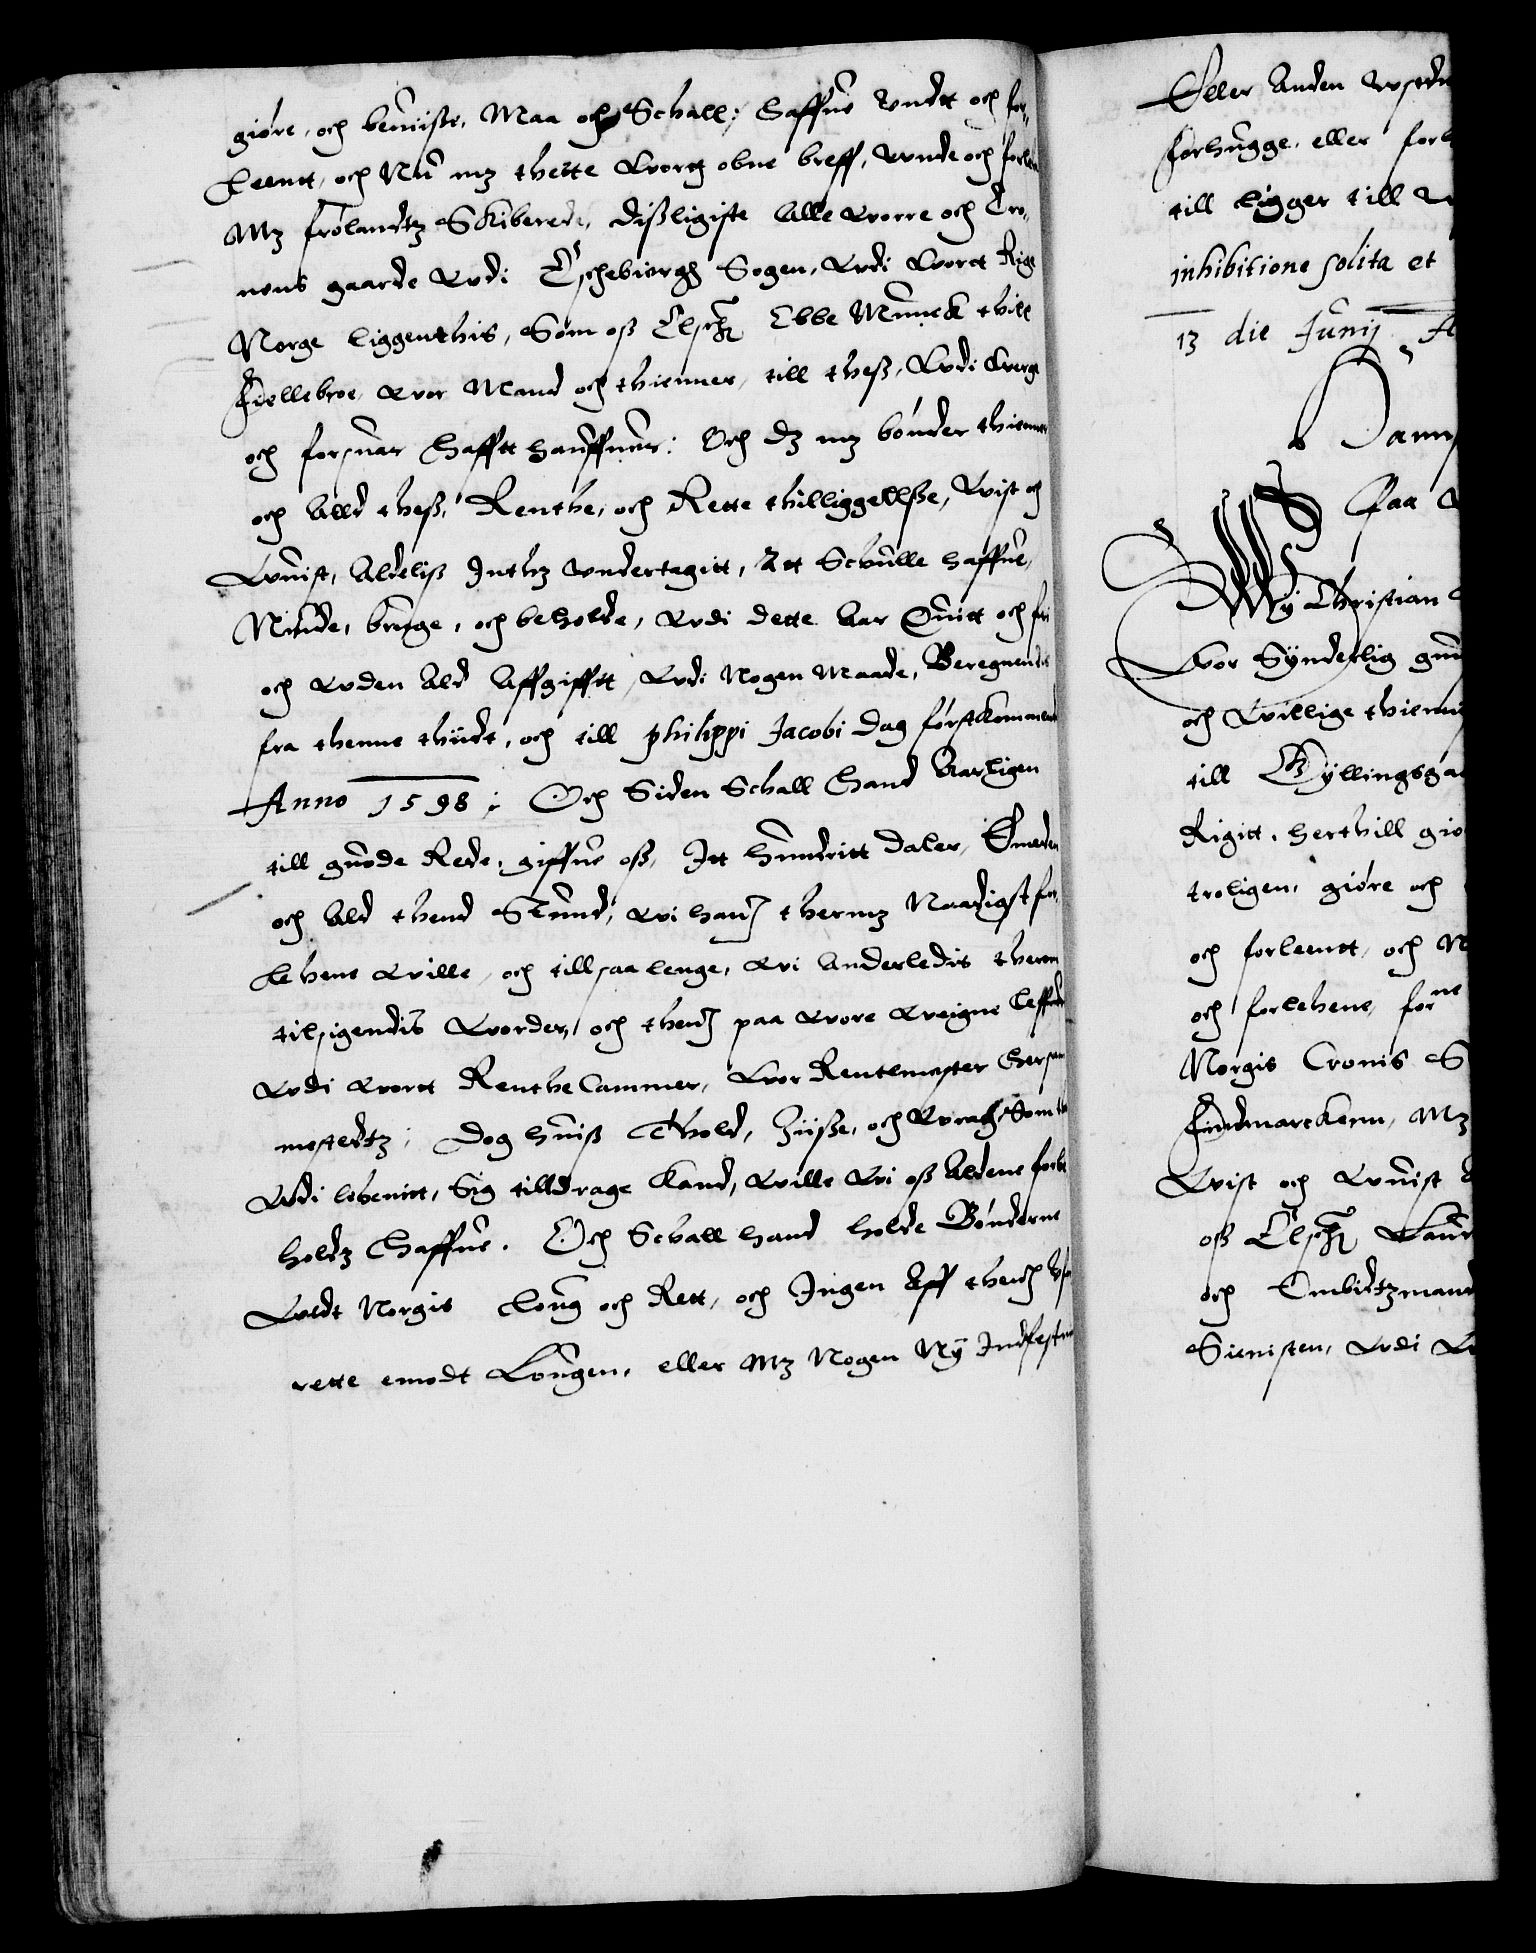 giøre, och beuiise, Maa och Schall, haffue undtt och for,
Leentt, och Nu mz thette Wortz obne breff, unde och forlene
Mz frolandtz Skiberede, disligiste Alle Worre och Cro,
nens gaarde Udi Eschebiergh Sogen, Udi Wortt Rige
Norge liggenthis, Som oss Elsche Ebbe Munck thill
Fiellebroe wor Mand och thiener, till thess, Udi Werge
och forsuar hafftt haufuer: Och dz mz bønder thienner
och Alld thess, Renthe, och Rette thilliggellsse, Wist och
Wuist, Aldeliss Inthz undertagitt, Att Schulle haffue,
Niude, bruge, och beholde, Udi dette Aar Quitt och fri
och Uden Ald Affgifftt, Udi Nogen Maade, Beregnendis
fra thenne thiidt, och till philippi Jacobi dag førstkommend
Anno 1598; Och Siden Schall Hand Aarligen
till guode Rede, giffue oss, Itt hundritt daler, Emeden
och Ald thend Stund, wi hand thermz Naadigst for,
Lehene wille, och till saa lenge, wi Anderledis therom
tilsigendis worder, och thend paa Wore Weigne leffuere
Udi wortt Renthe Cammer, Wor Rentemester
mestedtz; Dog huiss Thold, Siisse, och Wragh Som ther
Udi lehenitt, Sig tilldrage Kand, wille wi oss Aldene forbe
holdz Haffue. Och Schall hand holde Bønderne
Wedt Norgis Loug och Rett, och Ingen Aff thend
rette emodt Lougen, eller Mz Nogen Ny Indfestning
Eller Anden
forhugge, eller
till ligger till
inhibitione solita et
13 die Junij
Paa
Wy Christian
Wor Synderlig gun
och Willige thienni
till Gyllingsga
Rigitt, herthill gio
troligen, giøre och
och forleentt, och
och forlehene, forne
Norgis Cronis S
Findmarckenn, Mz
Wist och Wuist
oss Elsche Laur
och Embidtzmand
Sienisten, Udi